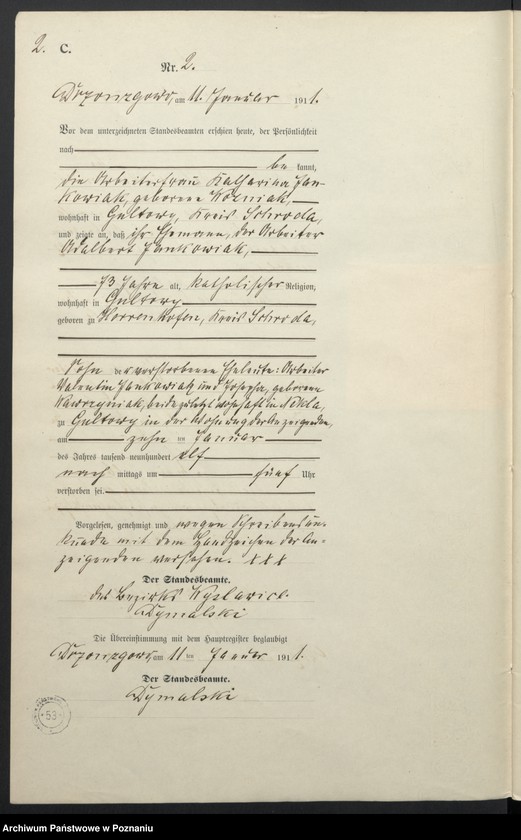 2. C.
Nr. 2.
am 11. Januar 1911.
Vor dem unterzeichneten Standesbeamten erschien heute, der Persönlichkeit
nach
be kannt,
die Arbeiterfrau Katharina Jan-
kowiak, geborene Woźniak,
wohnhaft in Gultowy, Kreis Schroda,
und zeigte an, daß ihr Ehemann, der Arbeiter
Adalbert Jankowiak,
73 Jahre alt, katholischer Religion,
wohnhaft in Gultowy
geboren zu Herrenhofen, Kreis Schroda,
Sohn der verstorbenen Eheleute: Arbeiter
Valentin Jankowiak und Josepha, geborene
beide zuletzt wohnhaft in Nekla,
zu Gultowy in der Wohnung der Anzeigenden,
am zehn ten Januar
des Jahres tausend neunhundert elf
nach mittags um fünf Uhr
verstorben sei.
Vorgelesen, genehmigt und wegen Schreibensun-
kunde mit dem Handzeichen der An-
zeigenden versehen. XXX
Der Standesbeamte.
des Bezirks
Dymalski
Die Übereinstimmung mit dem Hauptregister beglaubigt
am 11 ten Januar 1911.
Der Standesbeamte.
Dymalski
53
Archiwum Państwowe w Poznaniu